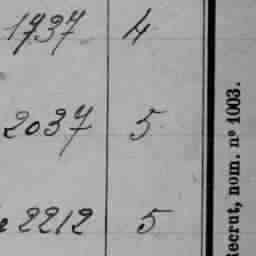 1737 4
2037 5
2212 5
Recrut, nom. nº 1003.